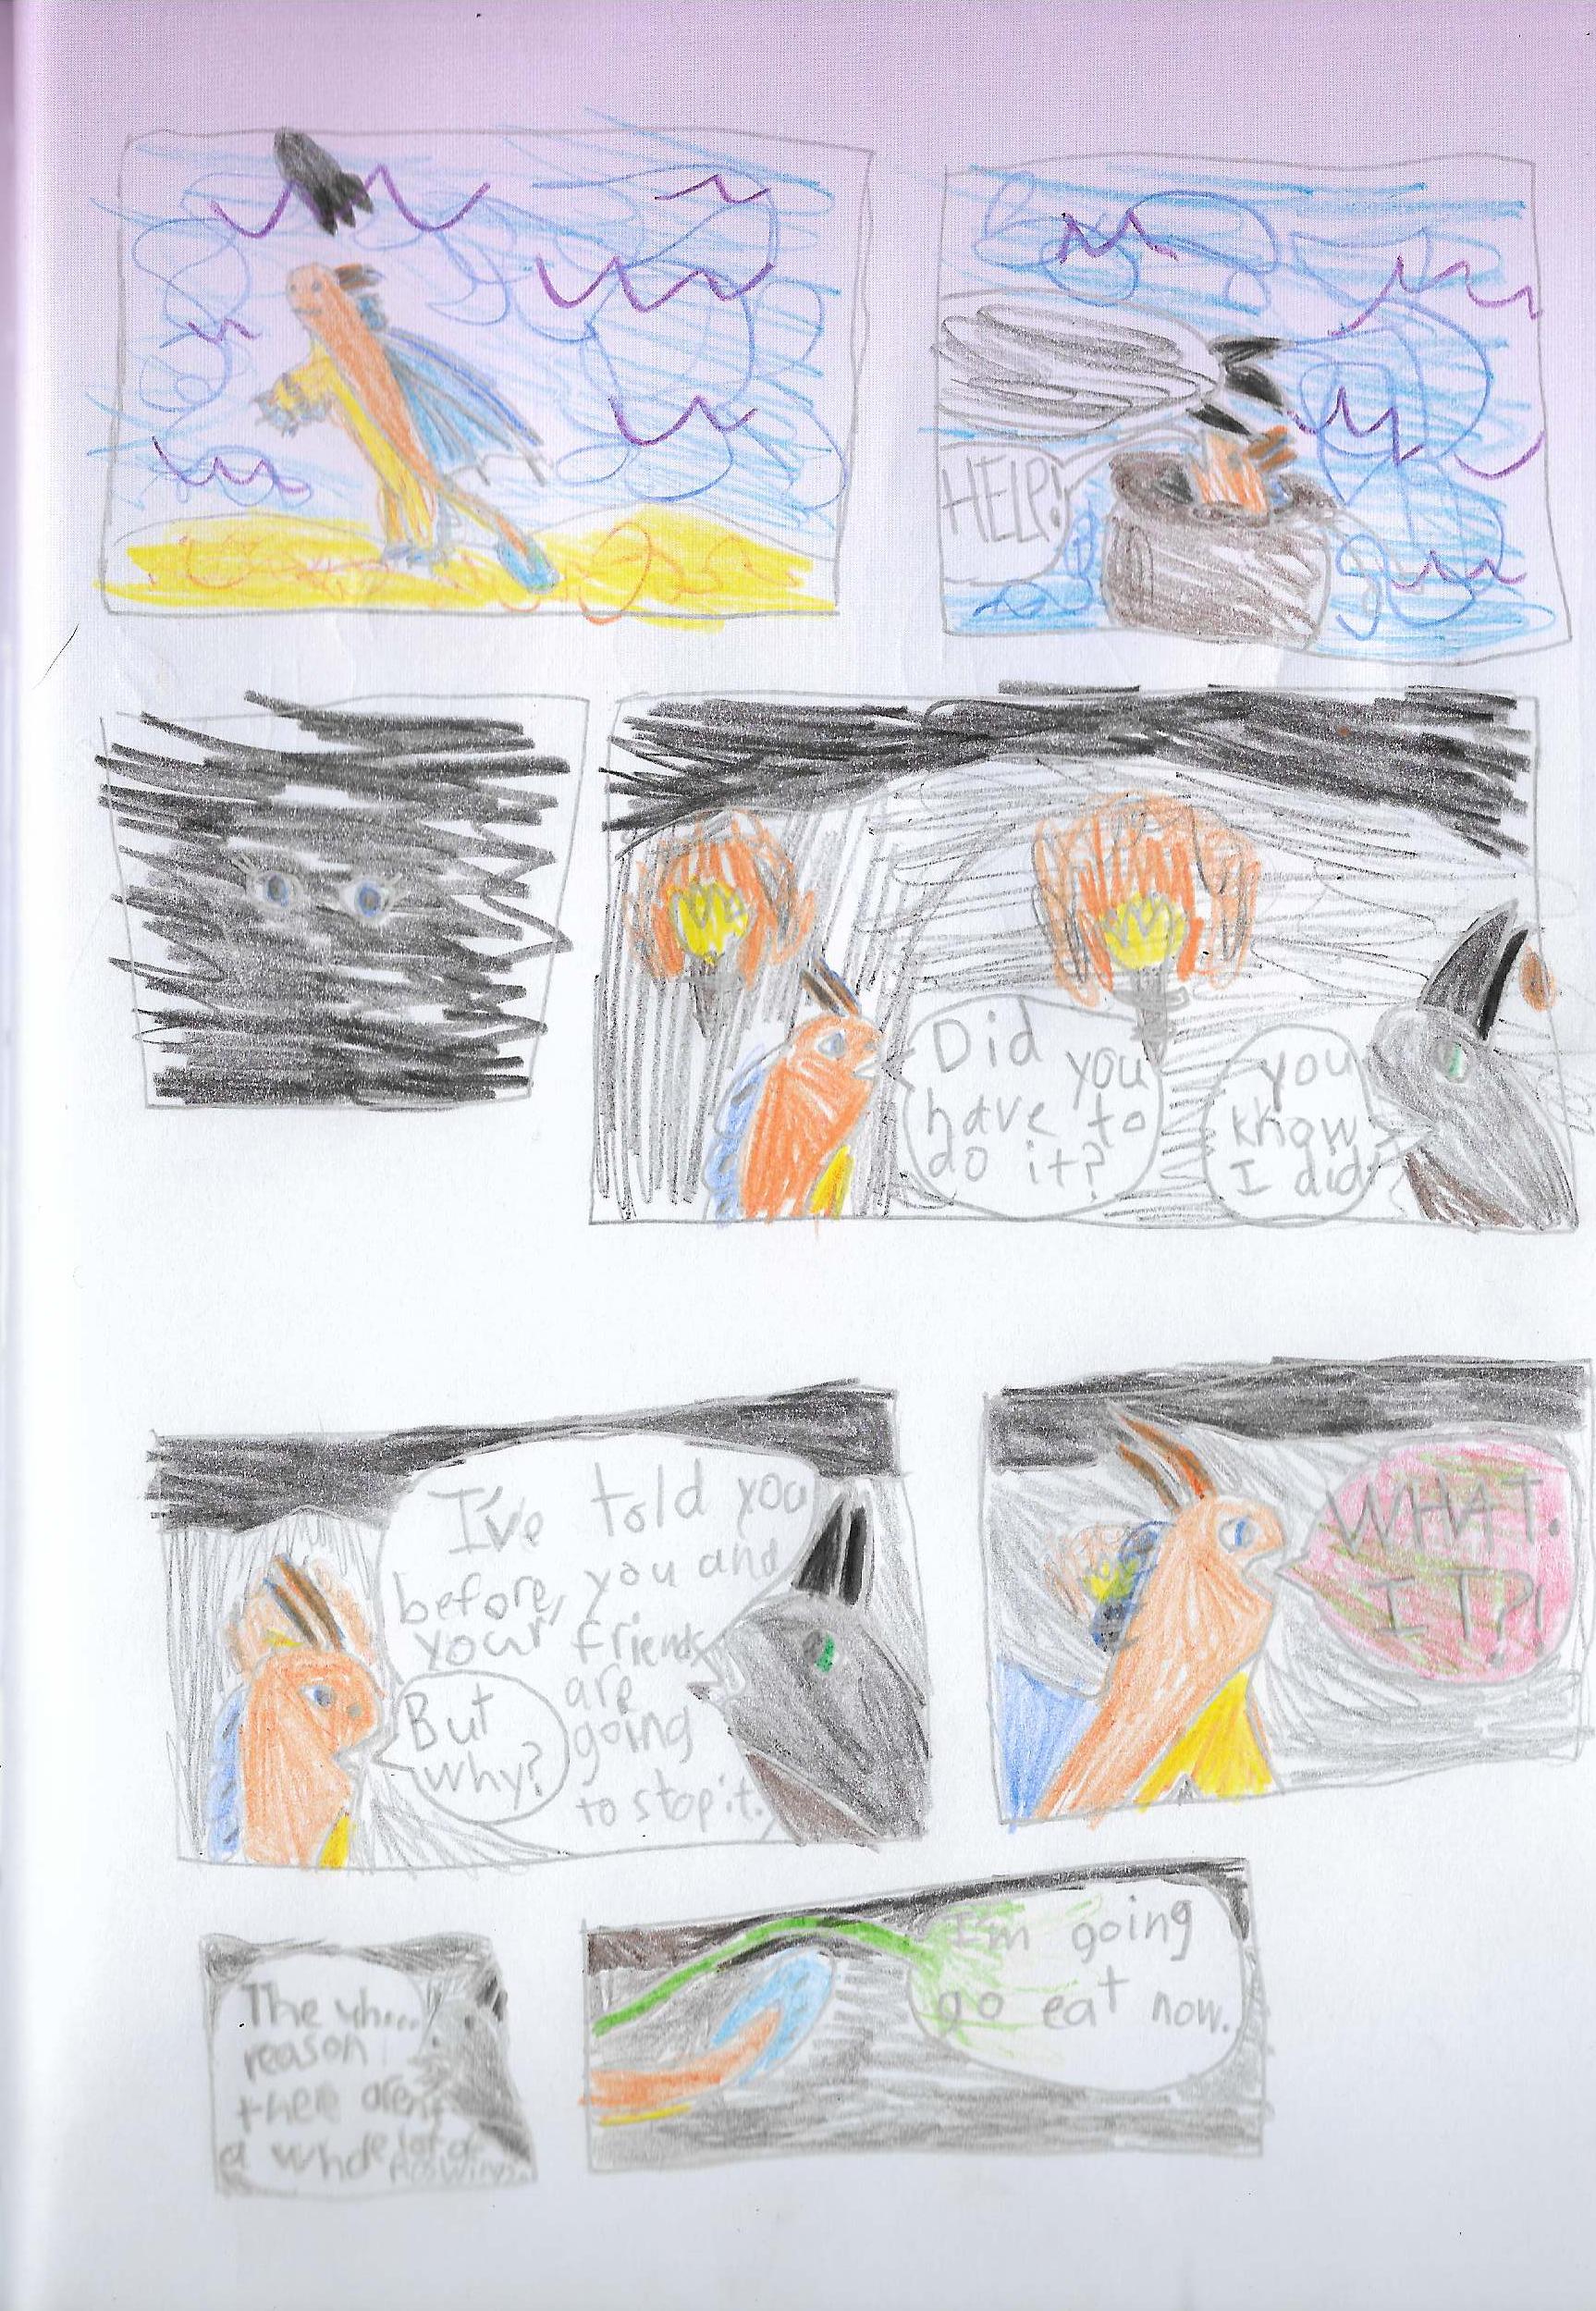 HELP!
Did you
have to
do it?
you
know
I did!
I've told you
before, you and
your friends
are
going
to stop it.
But
why?
WHAT.
IT?!
The uh...
reason
there aren't
a whole lot of
I'm going
go eat now.